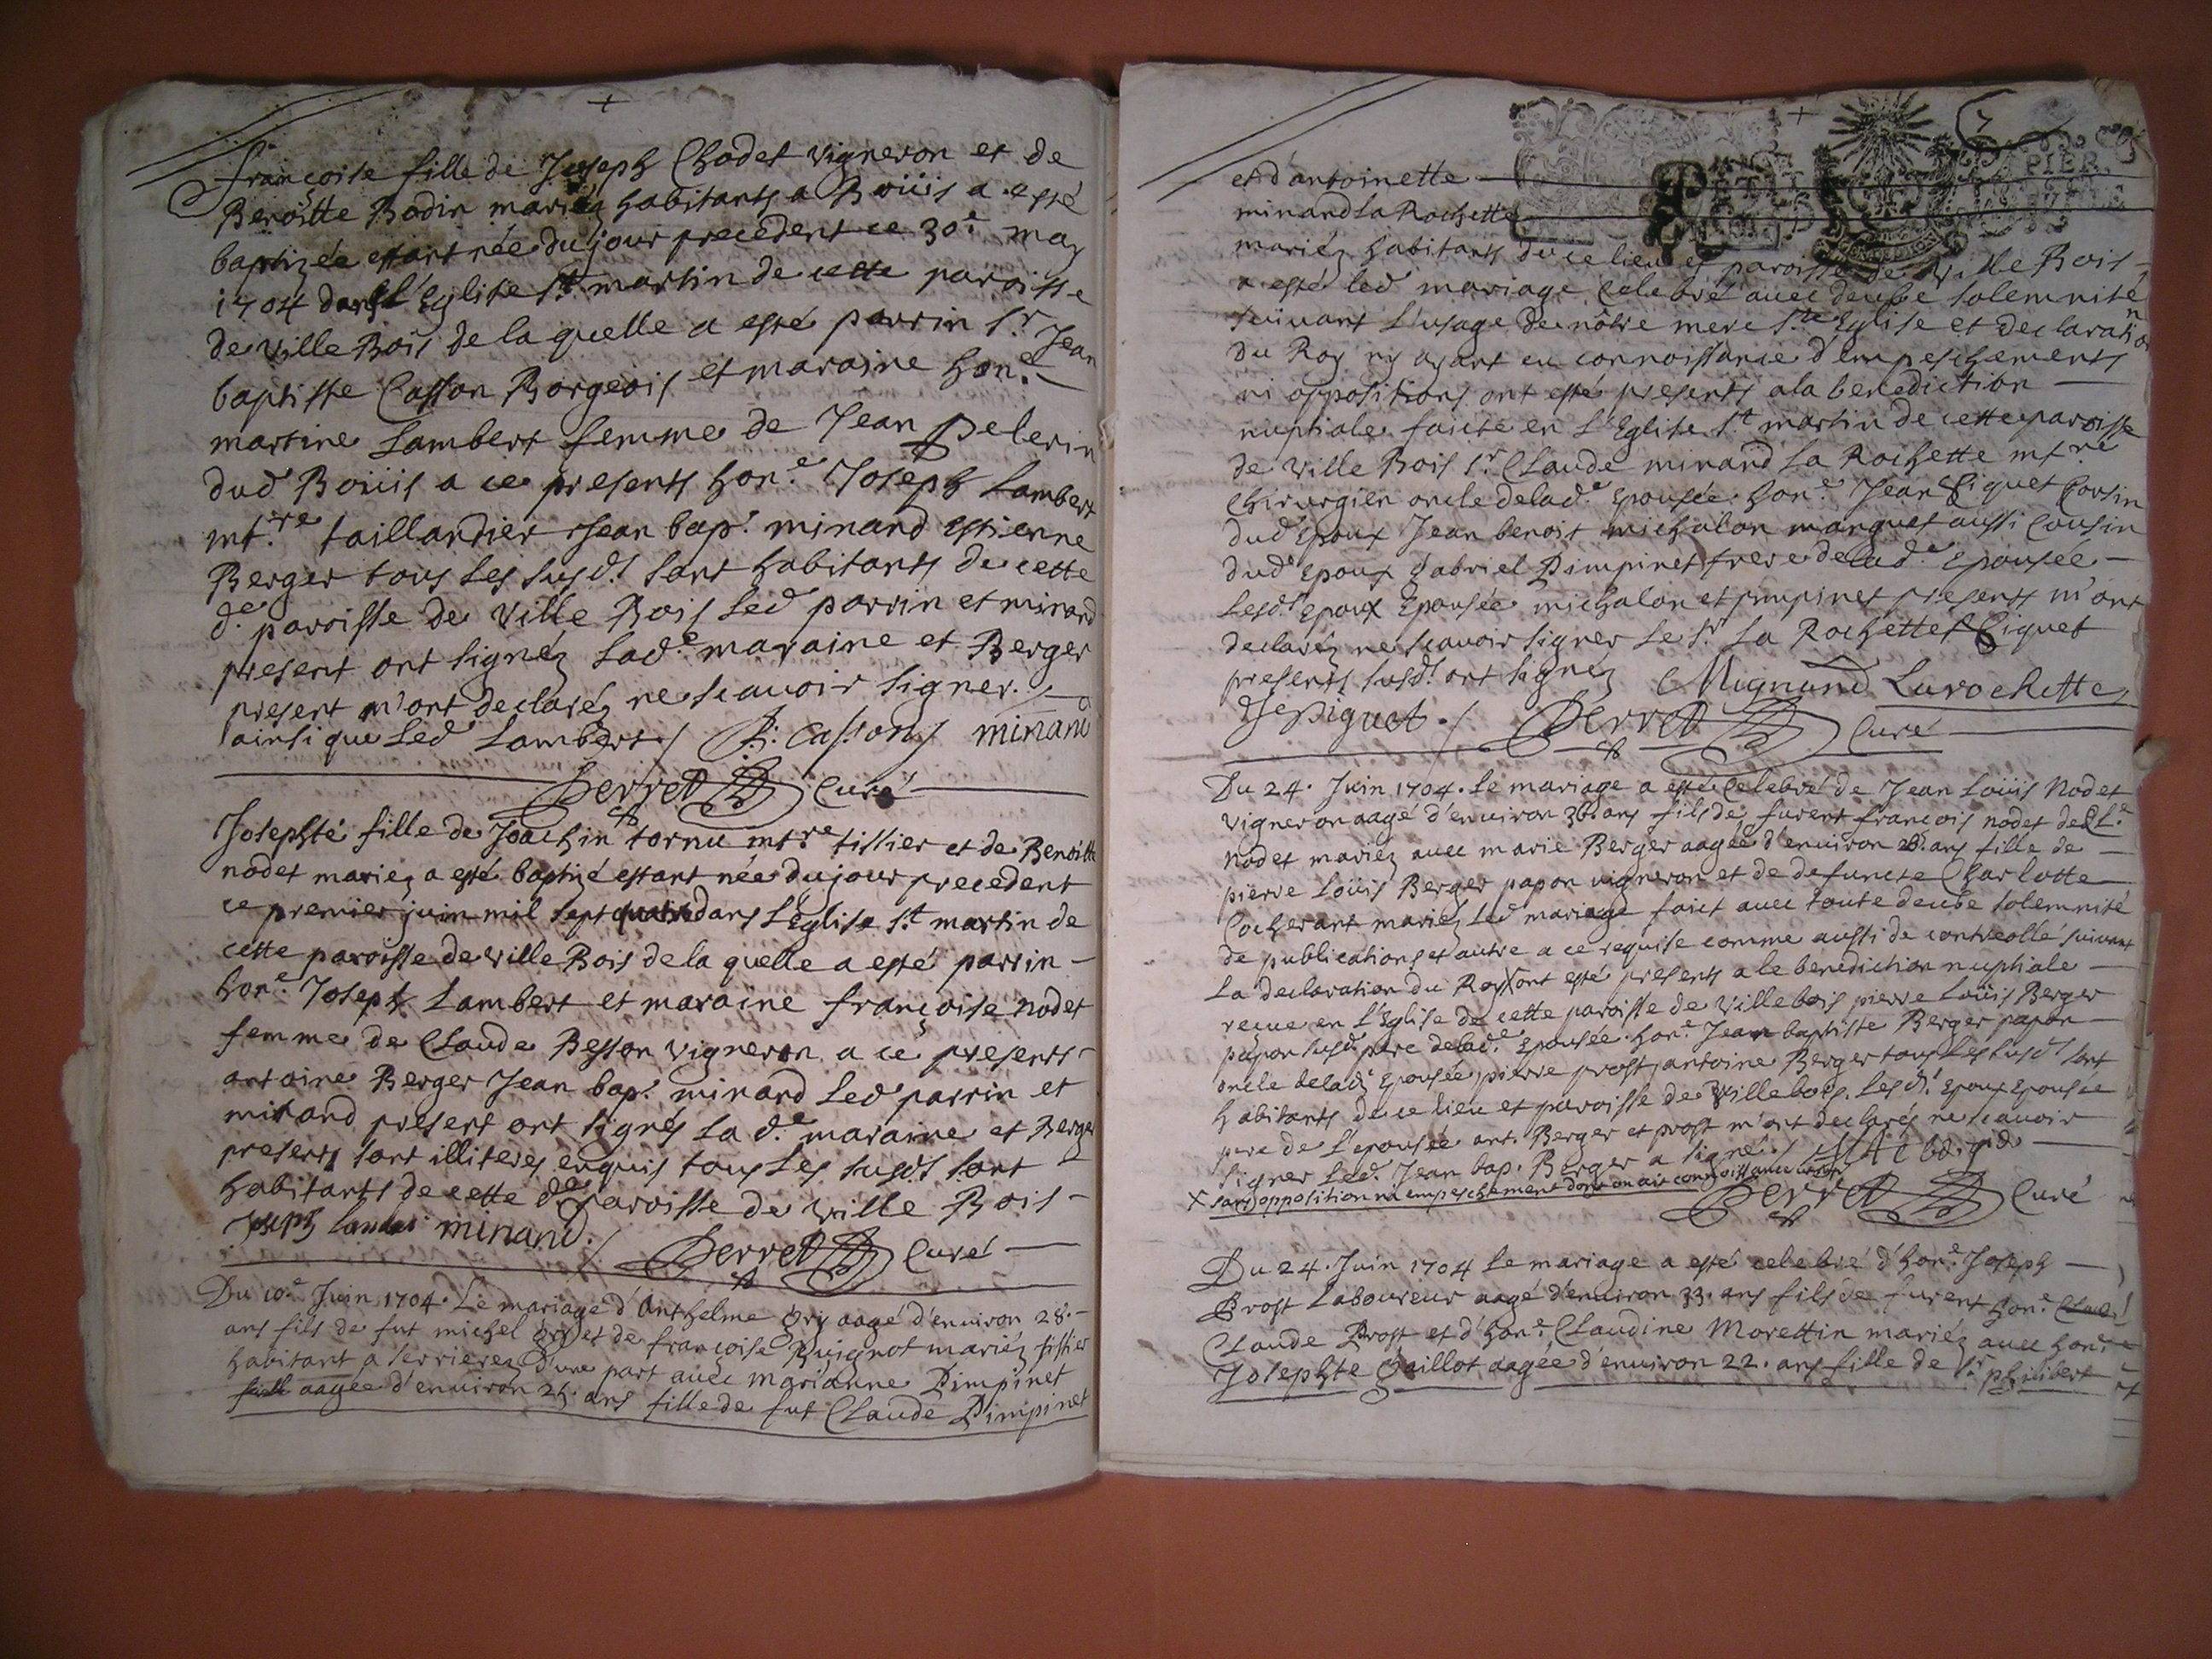 françoise fille de Joseph Chodet vigneron et de
Benoitte Bodin mariéz habitants a Boüis a esté
baptizée estant née du jour precedent ce 30e may
1704 dans l'Eglise St martin de cette paroisse
de ville Bois de laquelle a esté parrin Sr Jean
baptiste Casson Borgeois et maraine hon.e
martine Lambert femme de Jean pelerin
dud Boüis a ce presents hon.e Joseph Lambert
mtre taillandier Jean bap.t minand Estienne
Berger tous les susd.t sont habitants de cette
d.e paroisse de Ville Bois led parrin et minand
present ont signéz lad.e maraine et Berger
present m'ont declaréz ne scauoir signer.
ainsi que led Lambert / B: Casson minand
Perret Curé
Josephte fille de Joachin tornu mtre tissier et de Benoitte
nodet mariez a esté baptizé estant née du jour precedent
ce premier juin mil sept quatre dans l'Eglise St martin de
cette paroisse de ville Bois de la quelle a esté parrin
hon.e Joseph Lambert et maraine françoise nodet
femme de Claude Besson vigneron a ce presents
antoine Berger Jean bap.t minard led parrin et
minand present ont signés la d.e maraine et Berger
presents sont illiteres enquis tous les susd.t sont
habitants de cette d.e paroisse de ville Bois
Joseph minand / Perret Curé
Du 10.e Juin 1704. Le mariage d'Anthelme Ory aagé d'enuiron 28.
ans fils de fut michel Ory et de françoise Puignot mariéz
habitant a serrierez d'une part auec marianne Pimpinet
aagée d'enuiron 25. ans fille de fut Claude Pimpinet
7
et d'antoinette
minand La Rochette
mariéz habitants de ce lieu et paroisse de Ville Bois
a esté led mariage celebré auec deube solemnité
suiuant l'usage de nôtre mere Ste Eglise et declaration
du Roy ny ayant eu connoissance d'Empeschements
ni oppositions ont esté presents a la benediction
nuptiale faicte en l'Eglise St martin de cette paroisse
de ville Bois Sr Claude minand La Rochette mtre
Chirurgien oncle de lad.e epousée hon.e Jean Piquet Cousin
dud epoux Jean benoit michalon marquet aussi Cousin
dud epoux gabriel Pimpinet frere de lad.e epousée
Lesd.t epoux epousée michalon et pimpinet presents m'ont
declaréz ne scauoir signer le Sr La Rochette et Piquet
presents susd.t ont signéz Mignand Larochette
Piquet ./ Perret Curé
Du 24. Juin 1704. Le mariage a esté celebré de Jean Loüis Nodet
vigneron aagé d'enuiron 36 ans fils de furent françois nodet de
nodet mariéz auec marie Berger aagée d'enuiron 28. ans fille de
pierre Loüis Berger papon vigneron et de defuncte Charlotte
Cocherant mariéz led mariage faict auec toute deube solemnité
de publications et autre a ce requise comme aussi de controollé suiuant
La declaration du Roy X ont esté presents a le benediction nuptiale
reçue en l'Eglise de cette paroisse de Villebois pierre Loüis Berger
papon susd. pere de lad.e epousée hon.e Jean baptiste Berger papon
oncle de lad.e epousée pierre prost antoine Berger tous les susd.t sont
habitants de ce lieu et paroisse de Villebois. Lesd.t epoux epousée
pere de l'epousée ant. Berger et prost m'ont declarés ne scauoir
signer led. Jean bap. Berger a signé. /
X sans opposition ni empeschement dont on ait connoissance
Perret Curé
Du 24. Juin 1704 Le mariage a esté celebré d'hon.e Joseph
Prost Laboureur aagé d'enuiron 33. ans fils de furent hon.e
Claude Prost et d'hon.e Claudine Morettin mariéz auec hon.e
Josephte Gaillot aagée d'enuiron 22. ans fille de Sr philibert